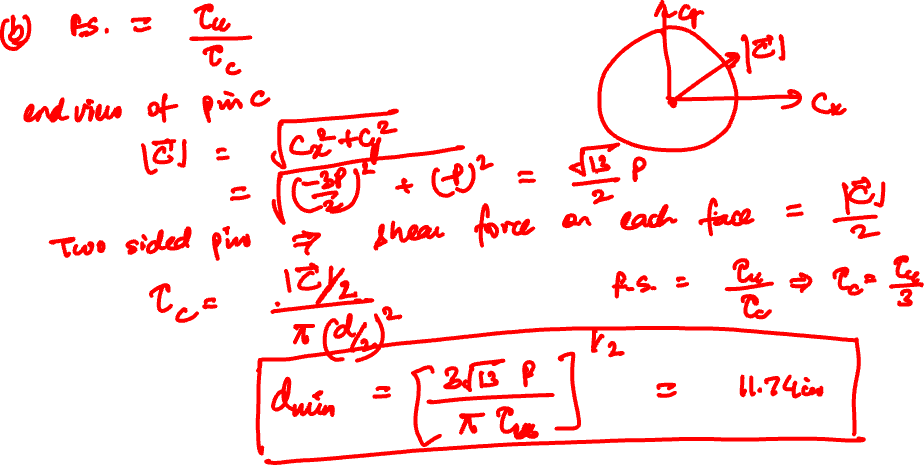 (b) F.S. = τu / τc
Cy
|C⃗|
Cx
end view of pin C
|C⃗| = √(Cx² + Cy²)
= √((-3P/2)² + (-P)²) = √13/2 P
Two sided pin ⇒ shear force on each face = |C⃗|/2
τc = |C⃗|/2 / π(d/2)²
F.S. = τu/τc ⇒ τc = τu/3
dmin = [3√13 P / π τu]^1/2 = 11.74in